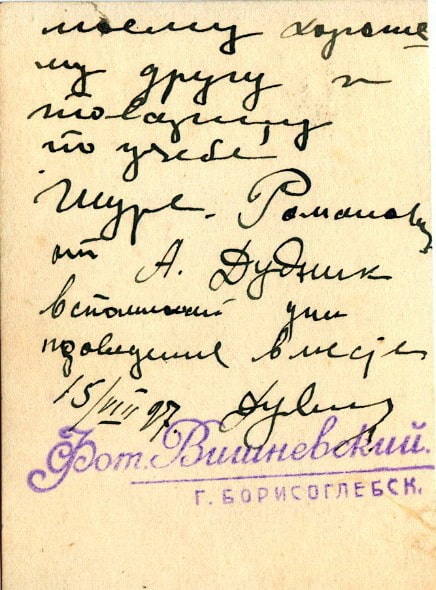 моему хороше
му другу и
товарищу
по учебе
Шуре. Романову
от А. Дудник
вспоминай дни
проведение вместе
15/VIII 97.
Фот. Вишневский.
Г. БОРИСОГЛЕБСК.